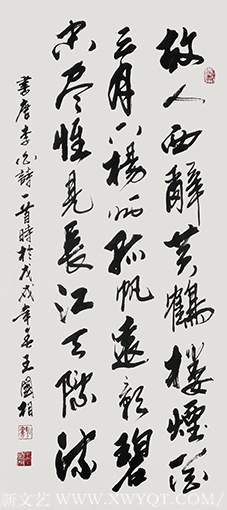 故人西辭黃鶴樓煙花
三月下楊州孤帆遠影碧
空盡惟見長江天際流
書唐李白詩一首時於戊戌年春王國相
新文艺 - WWW.XWYQT.COM/